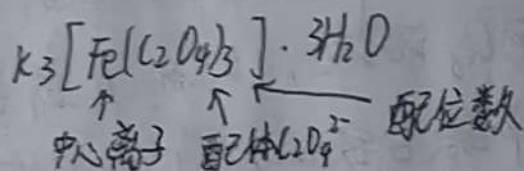 K3[Fe(C2O4)3]·3H2O
中心离子 配体C2O4²⁻ 配位数